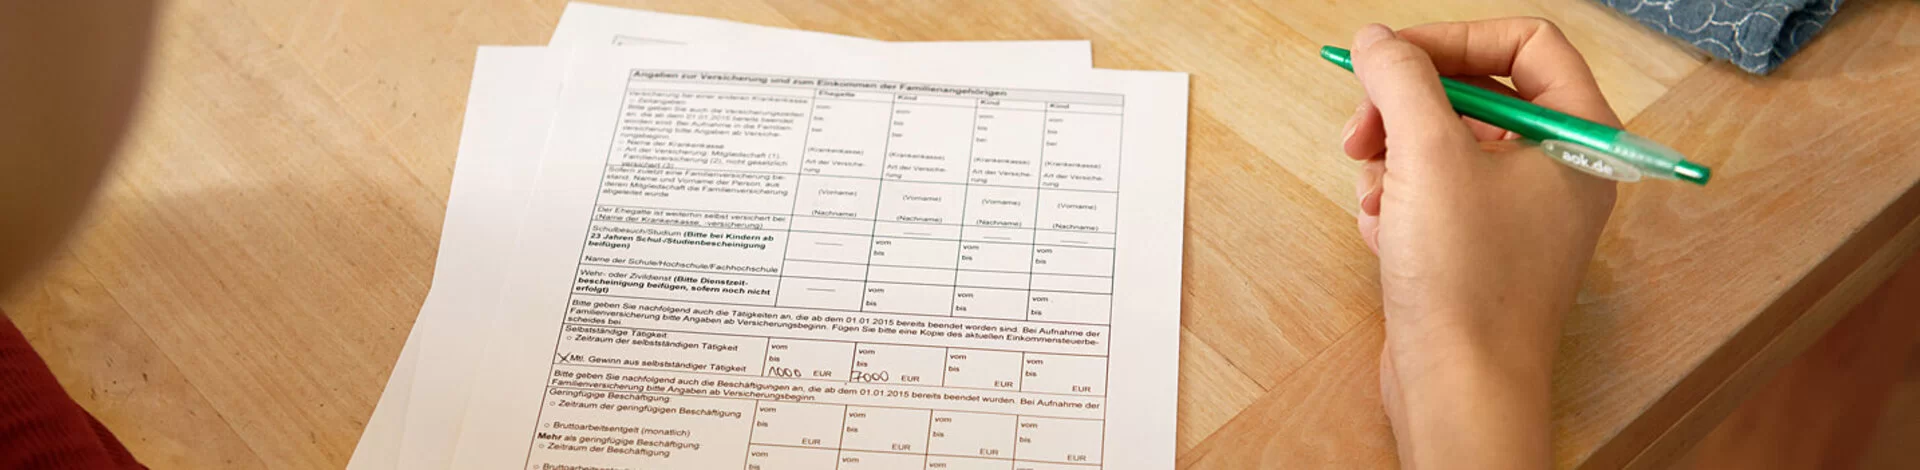 Angaben zur Versicherung und zum Einkommen der Familienangehörigen
Ehegatte Kind Kind Kind
Versicherung bei einer anderen Krankenkasse
○ Zeitangaben
Bitte geben Sie auch die Versicherungszeiten
an, die ab dem 21.01.2015 bereits beendet
worden sind. Bei Aufnahme in die Familien-
versicherung bitte Angaben ab Versiche-
rungsbeginn.
○ Name der Krankenkasse
○ Art der Versicherung: Mitgliedschaft (1),
Familienversicherung (2), nicht gesetzlich
versichert (3)
vom vom vom vom
bis bis bis bis
bei bei bei bei
(Krankenkasse) (Krankenkasse) (Krankenkasse) (Krankenkasse)
Art der Versiche- Art der Versiche- Art der Versiche- Art der Versiche-
rung rung rung rung
Sofern zuletzt eine Familienversicherung be-
stand, Name und Vorname der Person, aus
deren Mitgliedschaft die Familienversicherung
abgeleitet wurde
(Vorname) (Vorname) (Vorname) (Vorname)
(Nachname) (Nachname) (Nachname) (Nachname)
Der Ehegatte ist weiterhin selbst versichert bei
(Name der Krankenkasse, -versicherung)
Schulbesuch/Studium (Bitte bei Kindern ab
23 Jahren Schul-/Studienbescheinigung
beifügen)
vom vom vom
bis bis bis
Name der Schule/Hochschule/Fachhochschule
Wehr- oder Zivildienst (Bitte Dienstzeit-
bescheinigung beifügen, sofern noch nicht
erfolgt)
vom vom vom
bis bis bis
Bitte geben Sie nachfolgend auch die Tätigkeiten an, die ab dem 01.01.2015 bereits beendet worden sind. Bei Aufnahme der
Familienversicherung bitte Angaben ab Versicherungsbeginn. Fügen Sie bitte eine Kopie des aktuellen Einkommensteuerbe-
scheides bei.
Selbstständige Tätigkeit:
○ Zeitraum der selbstständigen Tätigkeit
vom vom vom vom
bis bis bis bis
X Mtl. Gewinn aus selbstständiger Tätigkeit 1000 EUR 7000 EUR EUR EUR
Bitte geben Sie nachfolgend auch die Beschäftigungen an, die ab dem 01.01.2015 bereits beendet wurden. Bei Aufnahme der
Familienversicherung bitte Angaben ab Versicherungsbeginn.
Geringfügige Beschäftigung:
○ Zeitraum der geringfügigen Beschäftigung
vom vom vom vom
bis bis bis bis
○ Bruttoarbeitsentgelt (monatlich) EUR EUR EUR EUR
Mehr als geringfügige Beschäftigung:
○ Zeitraum der Beschäftigung
vom vom vom
bis
aok.de